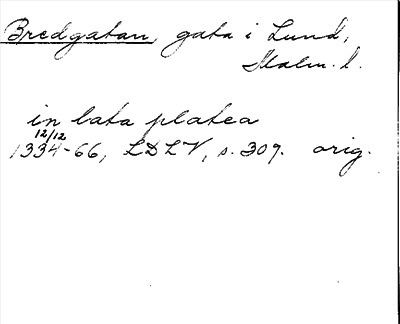 Bredgatan, gata i Lund,
Malm. l.
in lata platea
12/12
1334-66, LDLV, s. 309. orig.